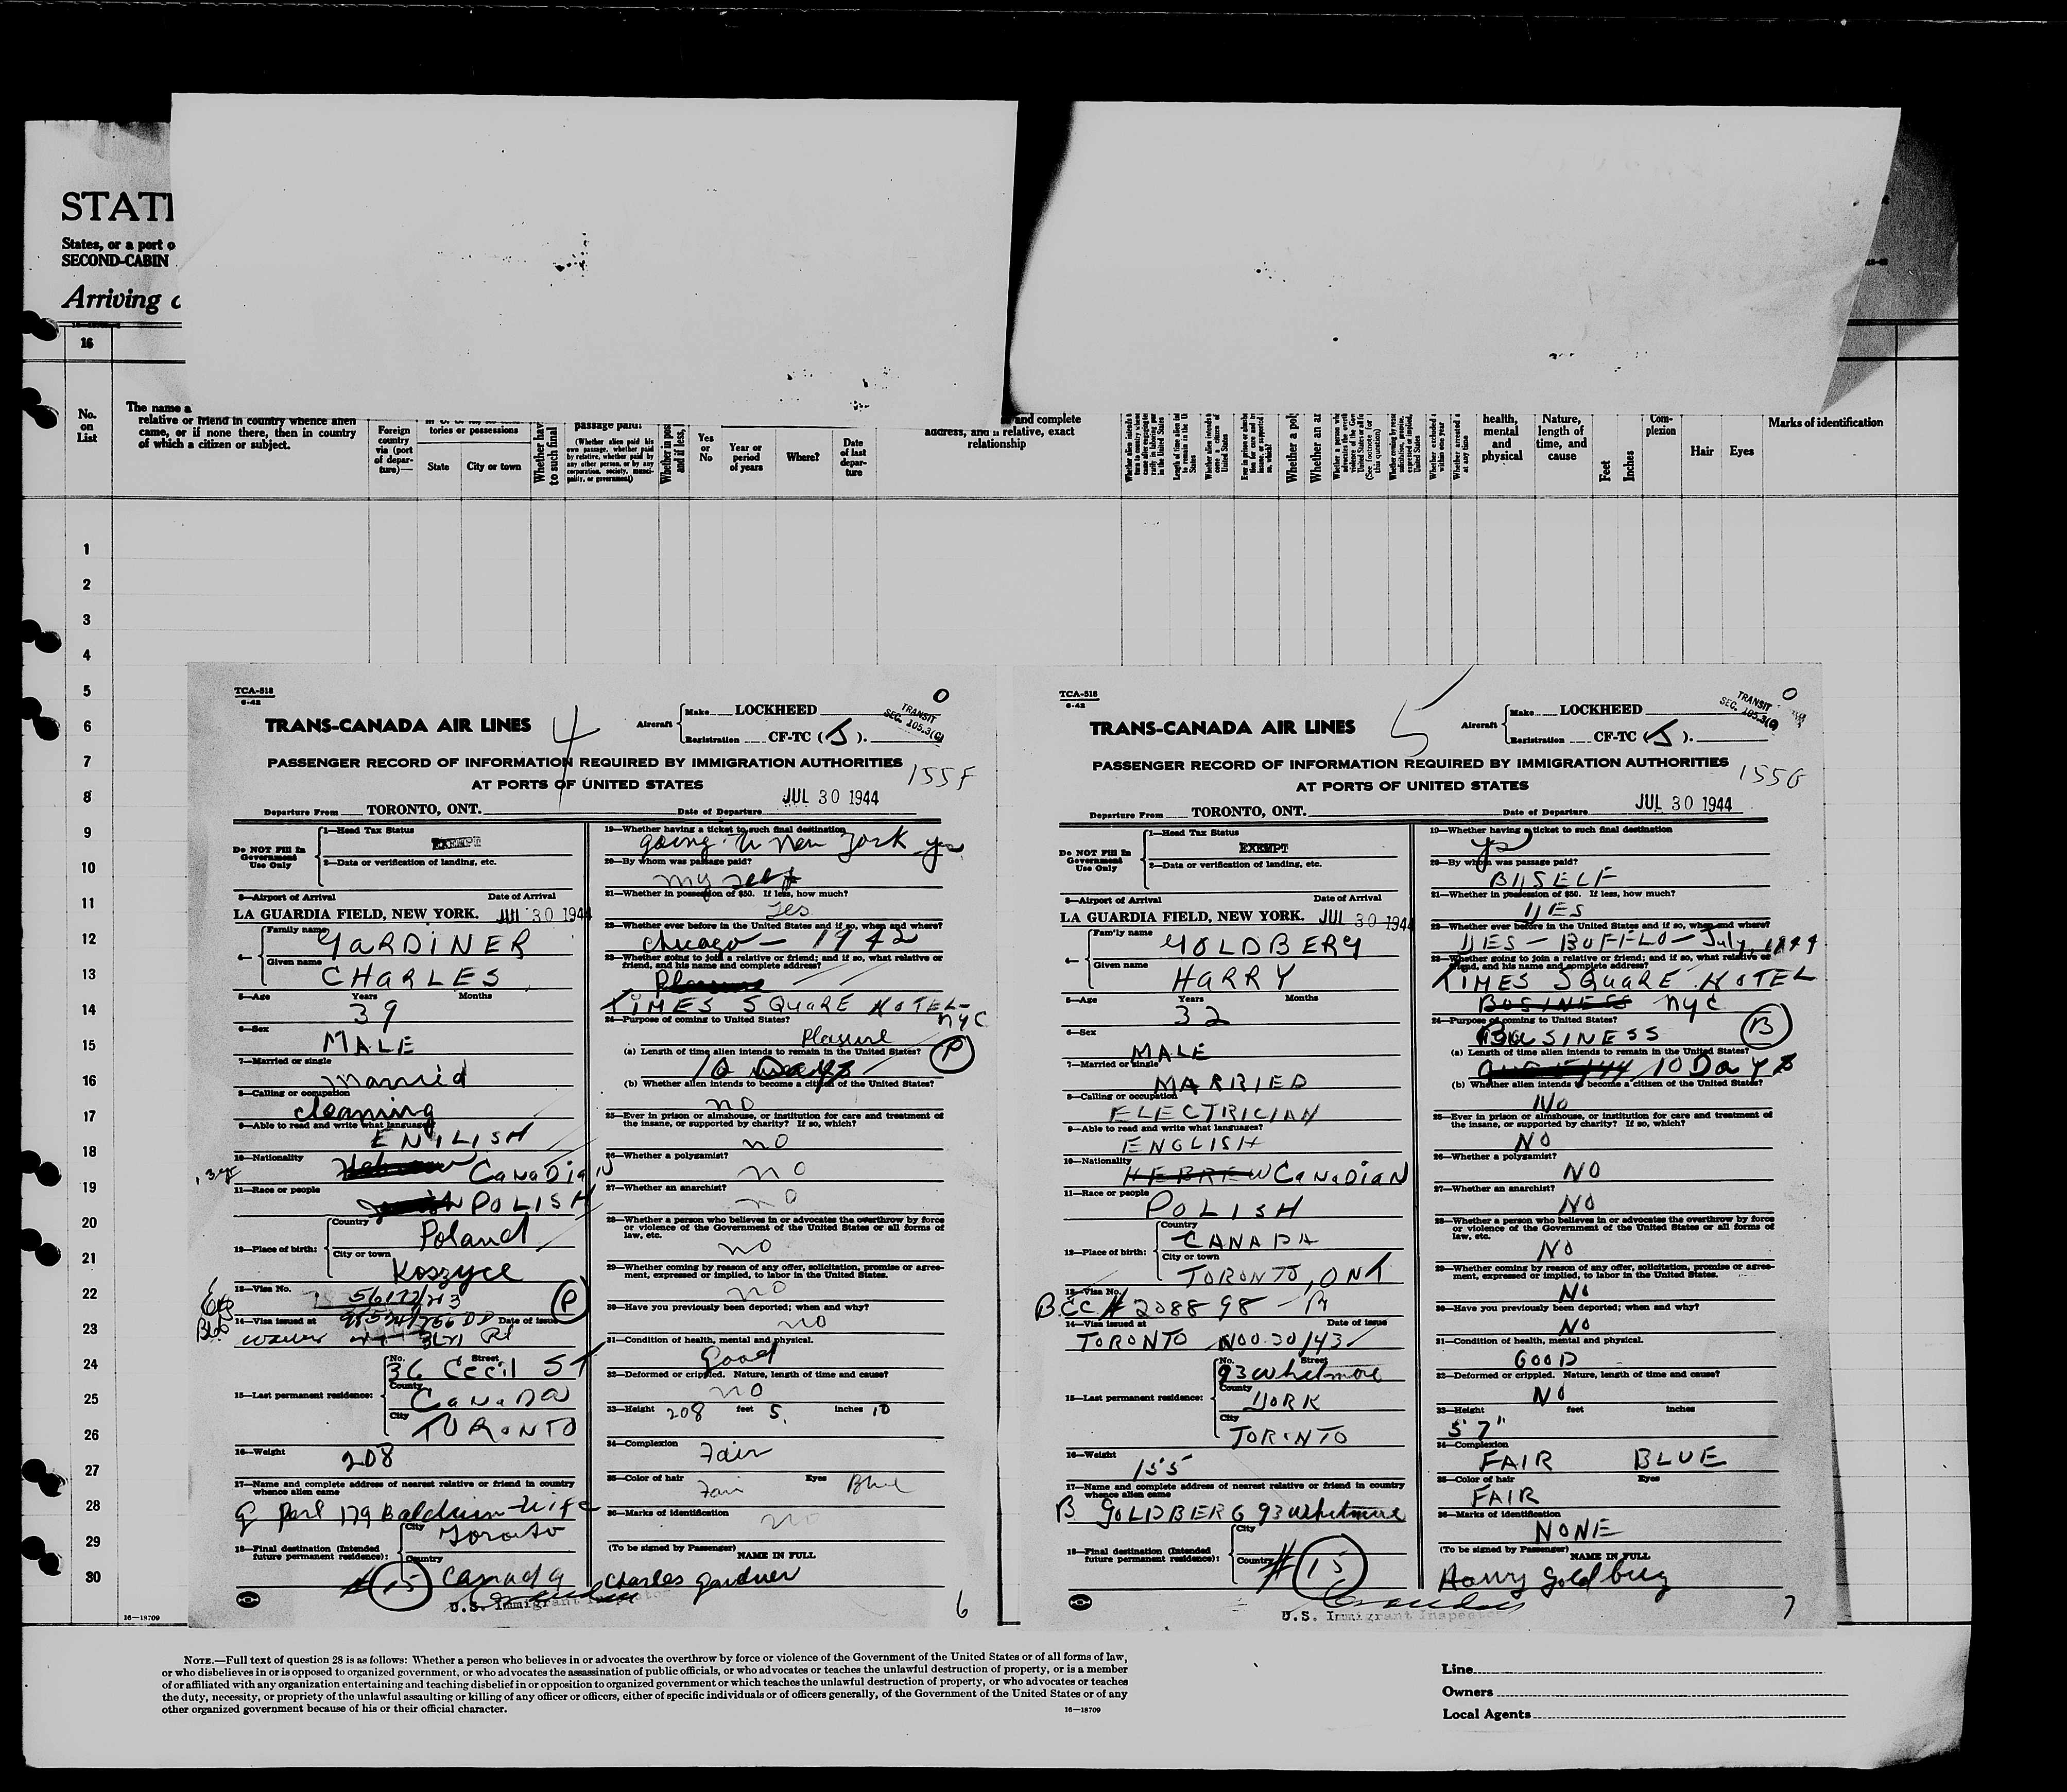 STATE
States, or a port o
SECOND-CABIN
Arriving
16
No.
on
List
The name a
relative or friend in country whence alien
came, or if none there, then in country
of which a citizen or subject.
Foreign
country
via (port
of depar-
ture)—
tories or possessions
State
City or town
Whether hav
to such final
passage paid?
(Whether alien paid his
own passage, whether paid
by relative, whether paid by
any other person, or by any
corporation, society, munici-
pality, or government)
Whether in pos
and if less,
Yes
or
No
Year or
period
of years
Where?
Date
of last
depar-
ture
and complete
address, and if relative, exact
relationship
Whether a pol
Whether an ar
health,
mental
and
physical
Nature,
length of
time, and
cause
Feet
Inches
Com-
plexion
Hair
Eyes
Marks of identification
1
2
3
4
5
6
7
8
9
10
11
12
13
14
15
16
17
18
19
20
21
22
23
24
25
26
27
28
29
30
16—18709
TCA-518
6-42
4
O
TRANS-CANADA AIR LINES
Aircraft
Make LOCKHEED
Registration CF-TC (J).
TRANSIT
SEC. 105.3(C)
PASSENGER RECORD OF INFORMATION REQUIRED BY IMMIGRATION AUTHORITIES
AT PORTS OF UNITED STATES
155F
Departure From TORONTO, ONT. Date of Departure JUL 30 1944
Do NOT Fill In
Government
Use Only
1—Head Tax Status
EXEMPT
2—Data or verification of landing, etc.
3—Airport of Arrival Date of Arrival
LA GUARDIA FIELD, NEW YORK. JUL 30 1944
4— Family name GARDINER
Given name CHARLES
5—Age Years Months
39
6—Sex
MALE
7—Married or single
Married
8—Calling or occupation
cleaning
9—Able to read and write what languages
ENILISH
10—Nationality
CANADIAN
11—Race or people
POLISH
12—Place of birth:
Country
Poland
City or town
Koszyce
13—Visa No.
56172/213
P
14—Visa issued at Date of issue
15—Last permanent residence:
No. Street
36 Cecil ST
County
CANADA
City
TORONTO
16—Weight
208
17—Name and complete address of nearest relative or friend in country
whence alien came
179 Baldwin - Wife
18—Final destination (Intended
future permanent residence):
City
Toronto
Country
Canada
# 15
U.S. Immigrant Inspector
19—Whether having a ticket to such final destination
going to New York yes
20—By whom was passage paid?
my self
21—Whether in possession of $50. If less, how much?
Yes
22—Whether ever before in the United States and if so, when and where?
Chicago — 1942
23—Whether going to join a relative or friend; and if so, what relative or
friend, and his name and complete address?
Pleasure
TIMES SQUARE HOTEL-
NYC
24—Purpose of coming to United States?
Plasure
P
(a) Length of time alien intends to remain in the United States?
10 Days
(b) Whether alien intends to become a citizen of the United States?
no
25—Ever in prison or almshouse, or institution for care and treatment of
the insane, or supported by charity? If so, which?
no
26—Whether a polygamist?
no
27—Whether an anarchist?
no
28—Whether a person who believes in or advocates the overthrow by force
or violence of the Government of the United States or all forms of
law, etc.
no
29—Whether coming by reason of any offer, solicitation, promise or agree-
ment, expressed or implied, to labor in the United States.
no
30—Have you previously been deported; when and why?
no
31—Condition of health, mental and physical.
Good
32—Deformed or crippled. Nature, length of time and cause?
no
33—Height 208 feet 5, inches 10
34—Complexion
Fair
35—Color of hair Eyes
Fair Blue
36—Marks of identification
no
(To be signed by Passenger)
NAME IN FULL
Charles Gardner
6
TCA-518
6-42
5
O
TRANS-CANADA AIR LINES
Aircraft
Make LOCKHEED
Registration CF-TC (J).
TRANSIT
SEC. 105.3(C)
PASSENGER RECORD OF INFORMATION REQUIRED BY IMMIGRATION AUTHORITIES
AT PORTS OF UNITED STATES
155G
Departure From TORONTO, ONT. Date of Departure JUL 30 1944
Do NOT Fill In
Government
Use Only
1—Head Tax Status
EXEMPT
2—Data or verification of landing, etc.
3—Airport of Arrival Date of Arrival
LA GUARDIA FIELD, NEW YORK. JUL 30 1944
4— Family name GOLDBERG
Given name HARRY
5—Age Years Months
32
6—Sex
MALE
7—Married or single
MARRIED
8—Calling or occupation
ELECTRICIAN
9—Able to read and write what languages?
ENGLISH
10—Nationality
HEBREW CANADIAN
11—Race or people
POLISH
12—Place of birth:
Country
CANADA
City or town
TORONTO, ONT
13—Visa No.
B.CC # 208898
14—Visa issued at Date of issue
TORONTO NOV.30/43
15—Last permanent residence:
No. Street
93 Whetmore
County
YORK
City
TORONTO
16—Weight
155
17—Name and complete address of nearest relative or friend in country
whence alien came
B GOLDBERG 93 Whetmore
18—Final destination (Intended
future permanent residence):
City
Country
# 15
U.S. Immigrant Inspector
19—Whether having a ticket to such final destination
yes
20—By whom was passage paid?
BYSELF
21—Whether in possession of $50. If less, how much?
YES
22—Whether ever before in the United States and if so, when and where?
YES — BUFFLO — July, 1944
23—Whether going to join a relative or friend; and if so, what relative or
friend, and his name and complete address?
TIMES SQUARE HOTEL
BUSINESS NYC
24—Purpose of coming to United States?
BUSINESS
B
(a) Length of time alien intends to remain in the United States?
10 Days
(b) Whether alien intends to become a citizen of the United States?
NO
25—Ever in prison or almshouse, or institution for care and treatment of
the insane, or supported by charity? If so, which?
NO
26—Whether a polygamist?
NO
27—Whether an anarchist?
NO
28—Whether a person who believes in or advocates the overthrow by force
or violence of the Government of the United States or all forms of
law, etc.
NO
29—Whether coming by reason of any offer, solicitation, promise or agree-
ment, expressed or implied, to labor in the United States.
NO
30—Have you previously been deported; when and why?
NO
31—Condition of health, mental and physical.
GOOD
32—Deformed or crippled. Nature, length of time and cause?
NO
33—Height feet inches
5'7"
34—Complexion
FAIR BLUE
35—Color of hair Eyes
FAIR
36—Marks of identification
NONE
(To be signed by Passenger)
NAME IN FULL
Harry Goldberg
7
NOTE.—Full text of question 28 is as follows: Whether a person who believes in or advocates the overthrow by force or violence of the Government of the United States or of all forms of law,
or who disbelieves in or is opposed to organized government, or who advocates the assassination of public officials, or who advocates or teaches the unlawful destruction of property, or is a member
of or affiliated with any organization entertaining and teaching disbelief in or opposition to organized government or which teaches the unlawful destruction of property, or who advocates or teaches
the duty, necessity, or propriety of the unlawful assaulting or killing of any officer or officers, either of specific individuals or of officers generally, of the Government of the United States or of any
other organized government because of his or their official character.
16—18709
Line
Owners
Local Agents